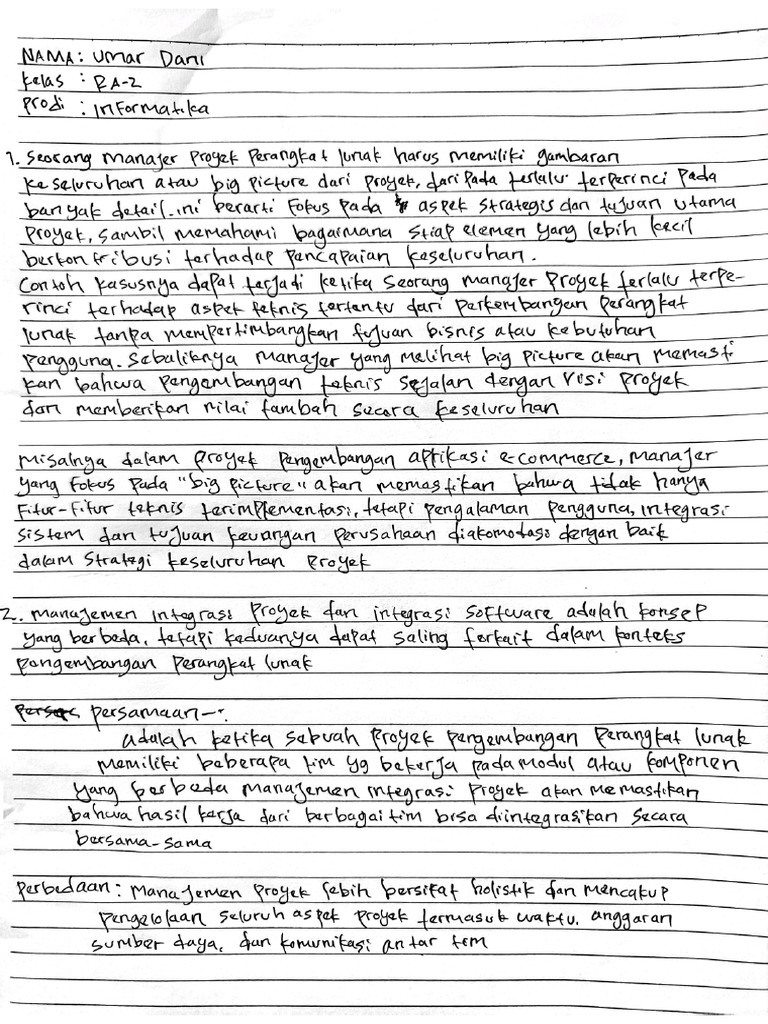 NAMA : Umar Dani
Kelas : RA-2
Prodi : Informatika
1. Seorang manajer proyek perangkat lunak harus memiliki gambaran
keseluruhan atau big picture dari proyek, dari pada terlalu terperinci pada
banyak detail. ini berarti fokus pada aspek strategis dan tujuan utama
proyek, sambil memahami bagaimana stiap elemen yang lebih kecil
berkontribusi terhadap pencapaian keseluruhan.
Contoh kasusnya dapat terjadi ketika seorang manajer proyek terlalu terpe-
rinci terhadap aspek teknis tertentu dari perkembangan perangkat
lunak tanpa mempertimbangkan tujuan bisnis atau kebutuhan
pengguna. Sebaliknya manajer yang melihat big picture akan memasti
kan bahwa pengembangan teknis sejalan dengan visi proyek
dan memberikan nilai tambah secara keseluruhan
misalnya dalam proyek pengembangan aplikasi e-commerce, manajer
yang fokus pada "big picture" akan memastikan bahwa tidak hanya
fitur-fitur teknis terimplementasi, tetapi pengalaman pengguna, integrasi
sistem dan tujuan keuangan perusahaan diakomotasi dengan baik
dalam strategi keseluruhan proyek
2. manajemen integrasi proyek dan integrasi software adalah konsep
yang berbeda, tetapi keduanya dapat saling terkait dalam konteks
pengembangan perangkat lunak
persamaan :
adalah ketika sebuah proyek pengembangan perangkat lunak
memiliki beberapa tim yg bekerja pada modul atau komponen
yang berbeda manajemen integrasi proyek akan memastikan
bahwa hasil kerja dari berbagai tim bisa diintegrasikan secara
bersama-sama
perbedaan : manajemen proyek lebih bersifat holistik dan mencakup
pengelolaan seluruh aspek proyek termasuk waktu, anggaran
sumber daya, dan komunikasi antar tim